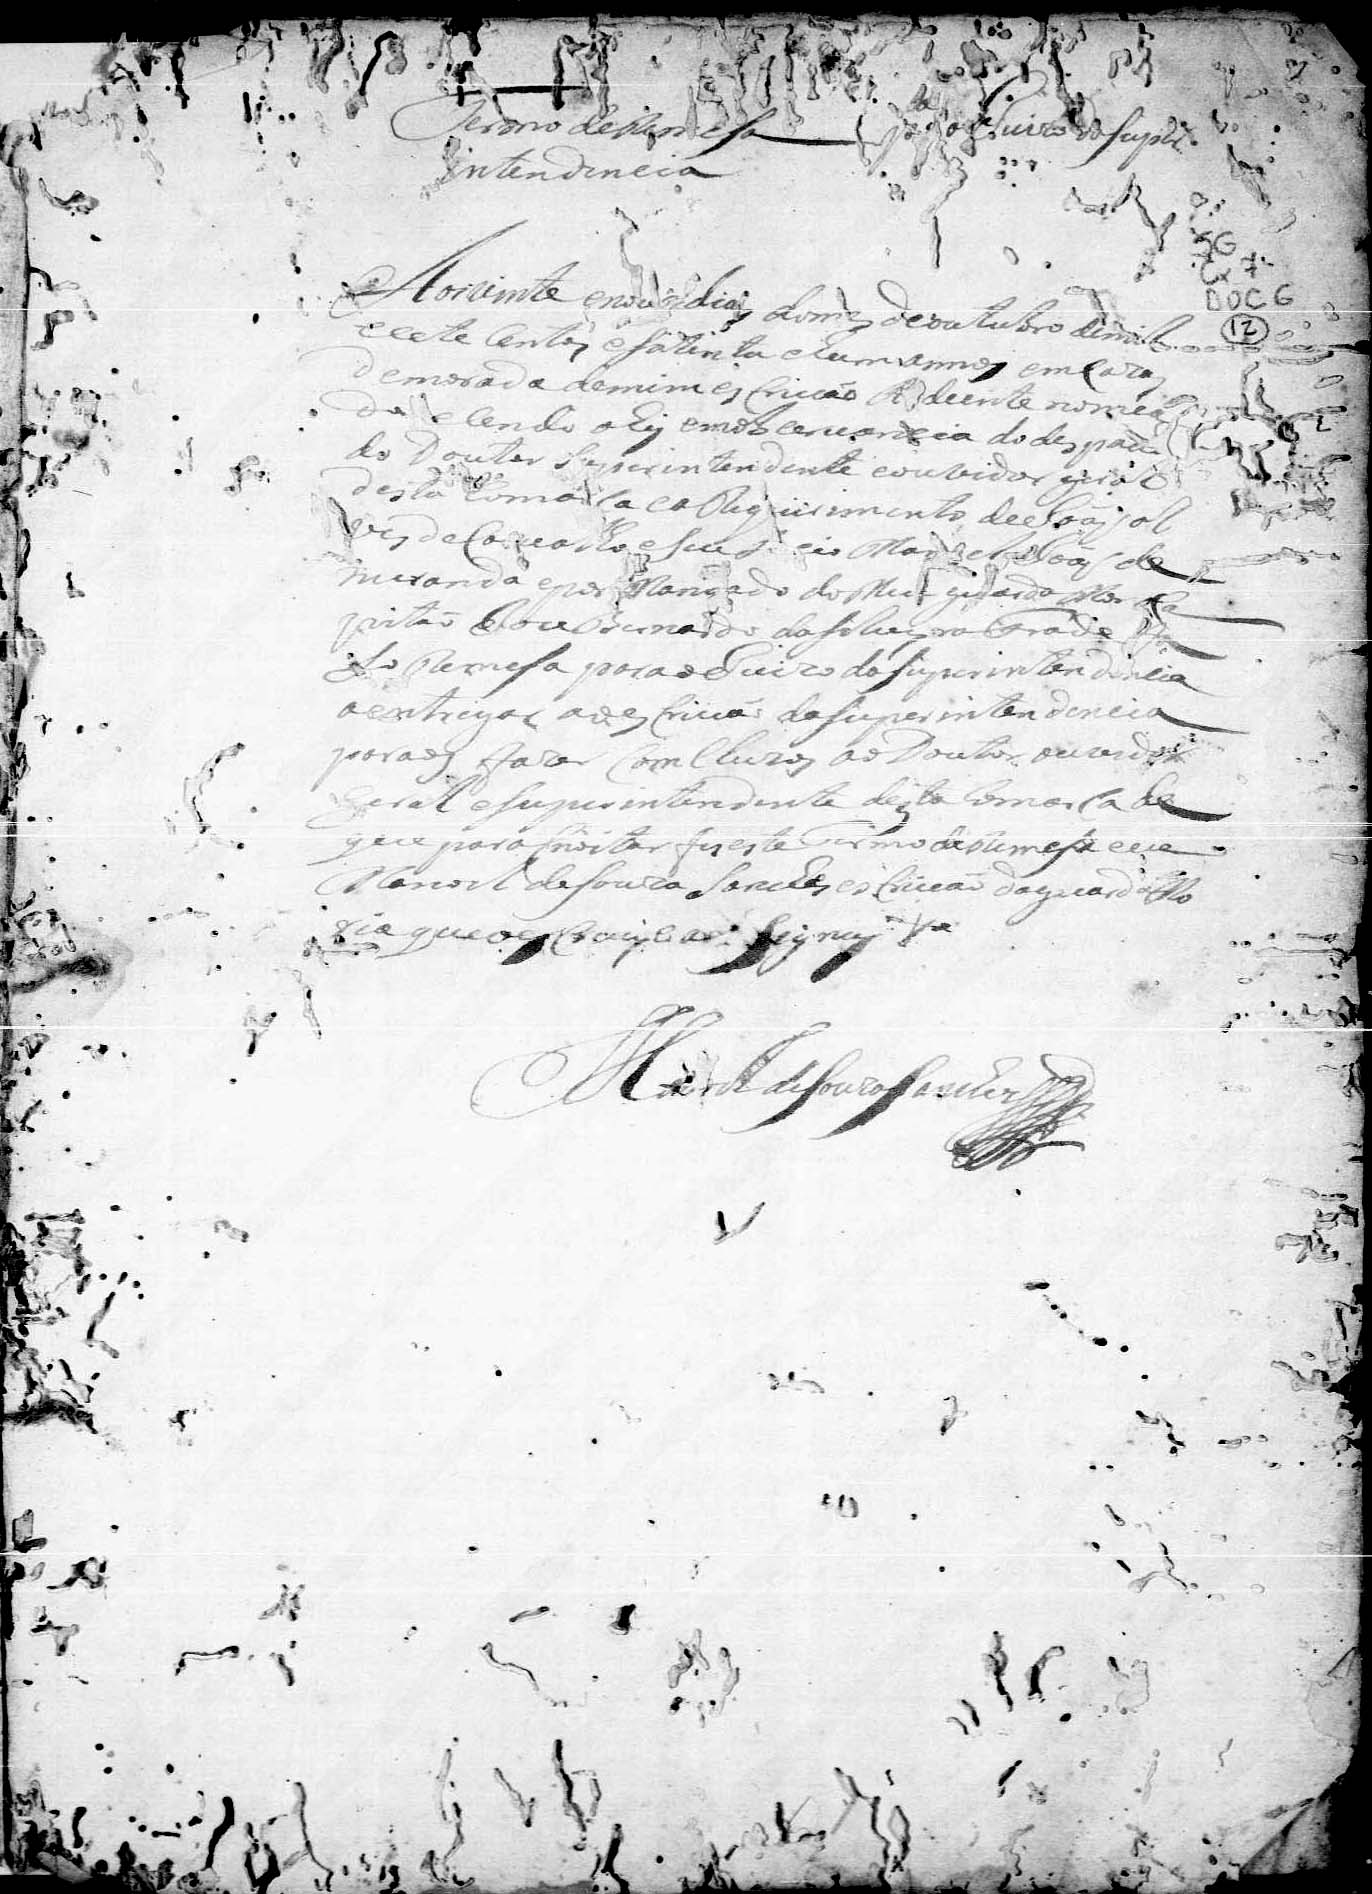 Termo de Remesa para o Juizo da Super
intendencia
SG
Cx 7
DOC 6
12
Aos vinte e nove dias do mes de outubro de mil
e cete centos e satenta e hum annos em cazas
de morada de mim escrivão Adiente nomea
do e sendo ahy em observancia do despacho
do Doutor Superintendente e ouvidor geral
desta Comarca e a Requirimento de João
ves de Carvalho e seu socio Manoel João de
miranda e por Mandado do guarda Mor Ca
pitão Bernardo da Silveyra
Remesa para o Juizo da Superintendencia
a entregar ao escrivão da Superintendencia
para os fazer Comcluzos ao Doutor ouvidor
geral e Superintendente desta Comarca de
que para Constar fis este Termo de Remesa e eu
Manoel de Souza Sanches escrivão da guarda Mo
ria que o escrevy e asigney
Manoel de Souza Sanches